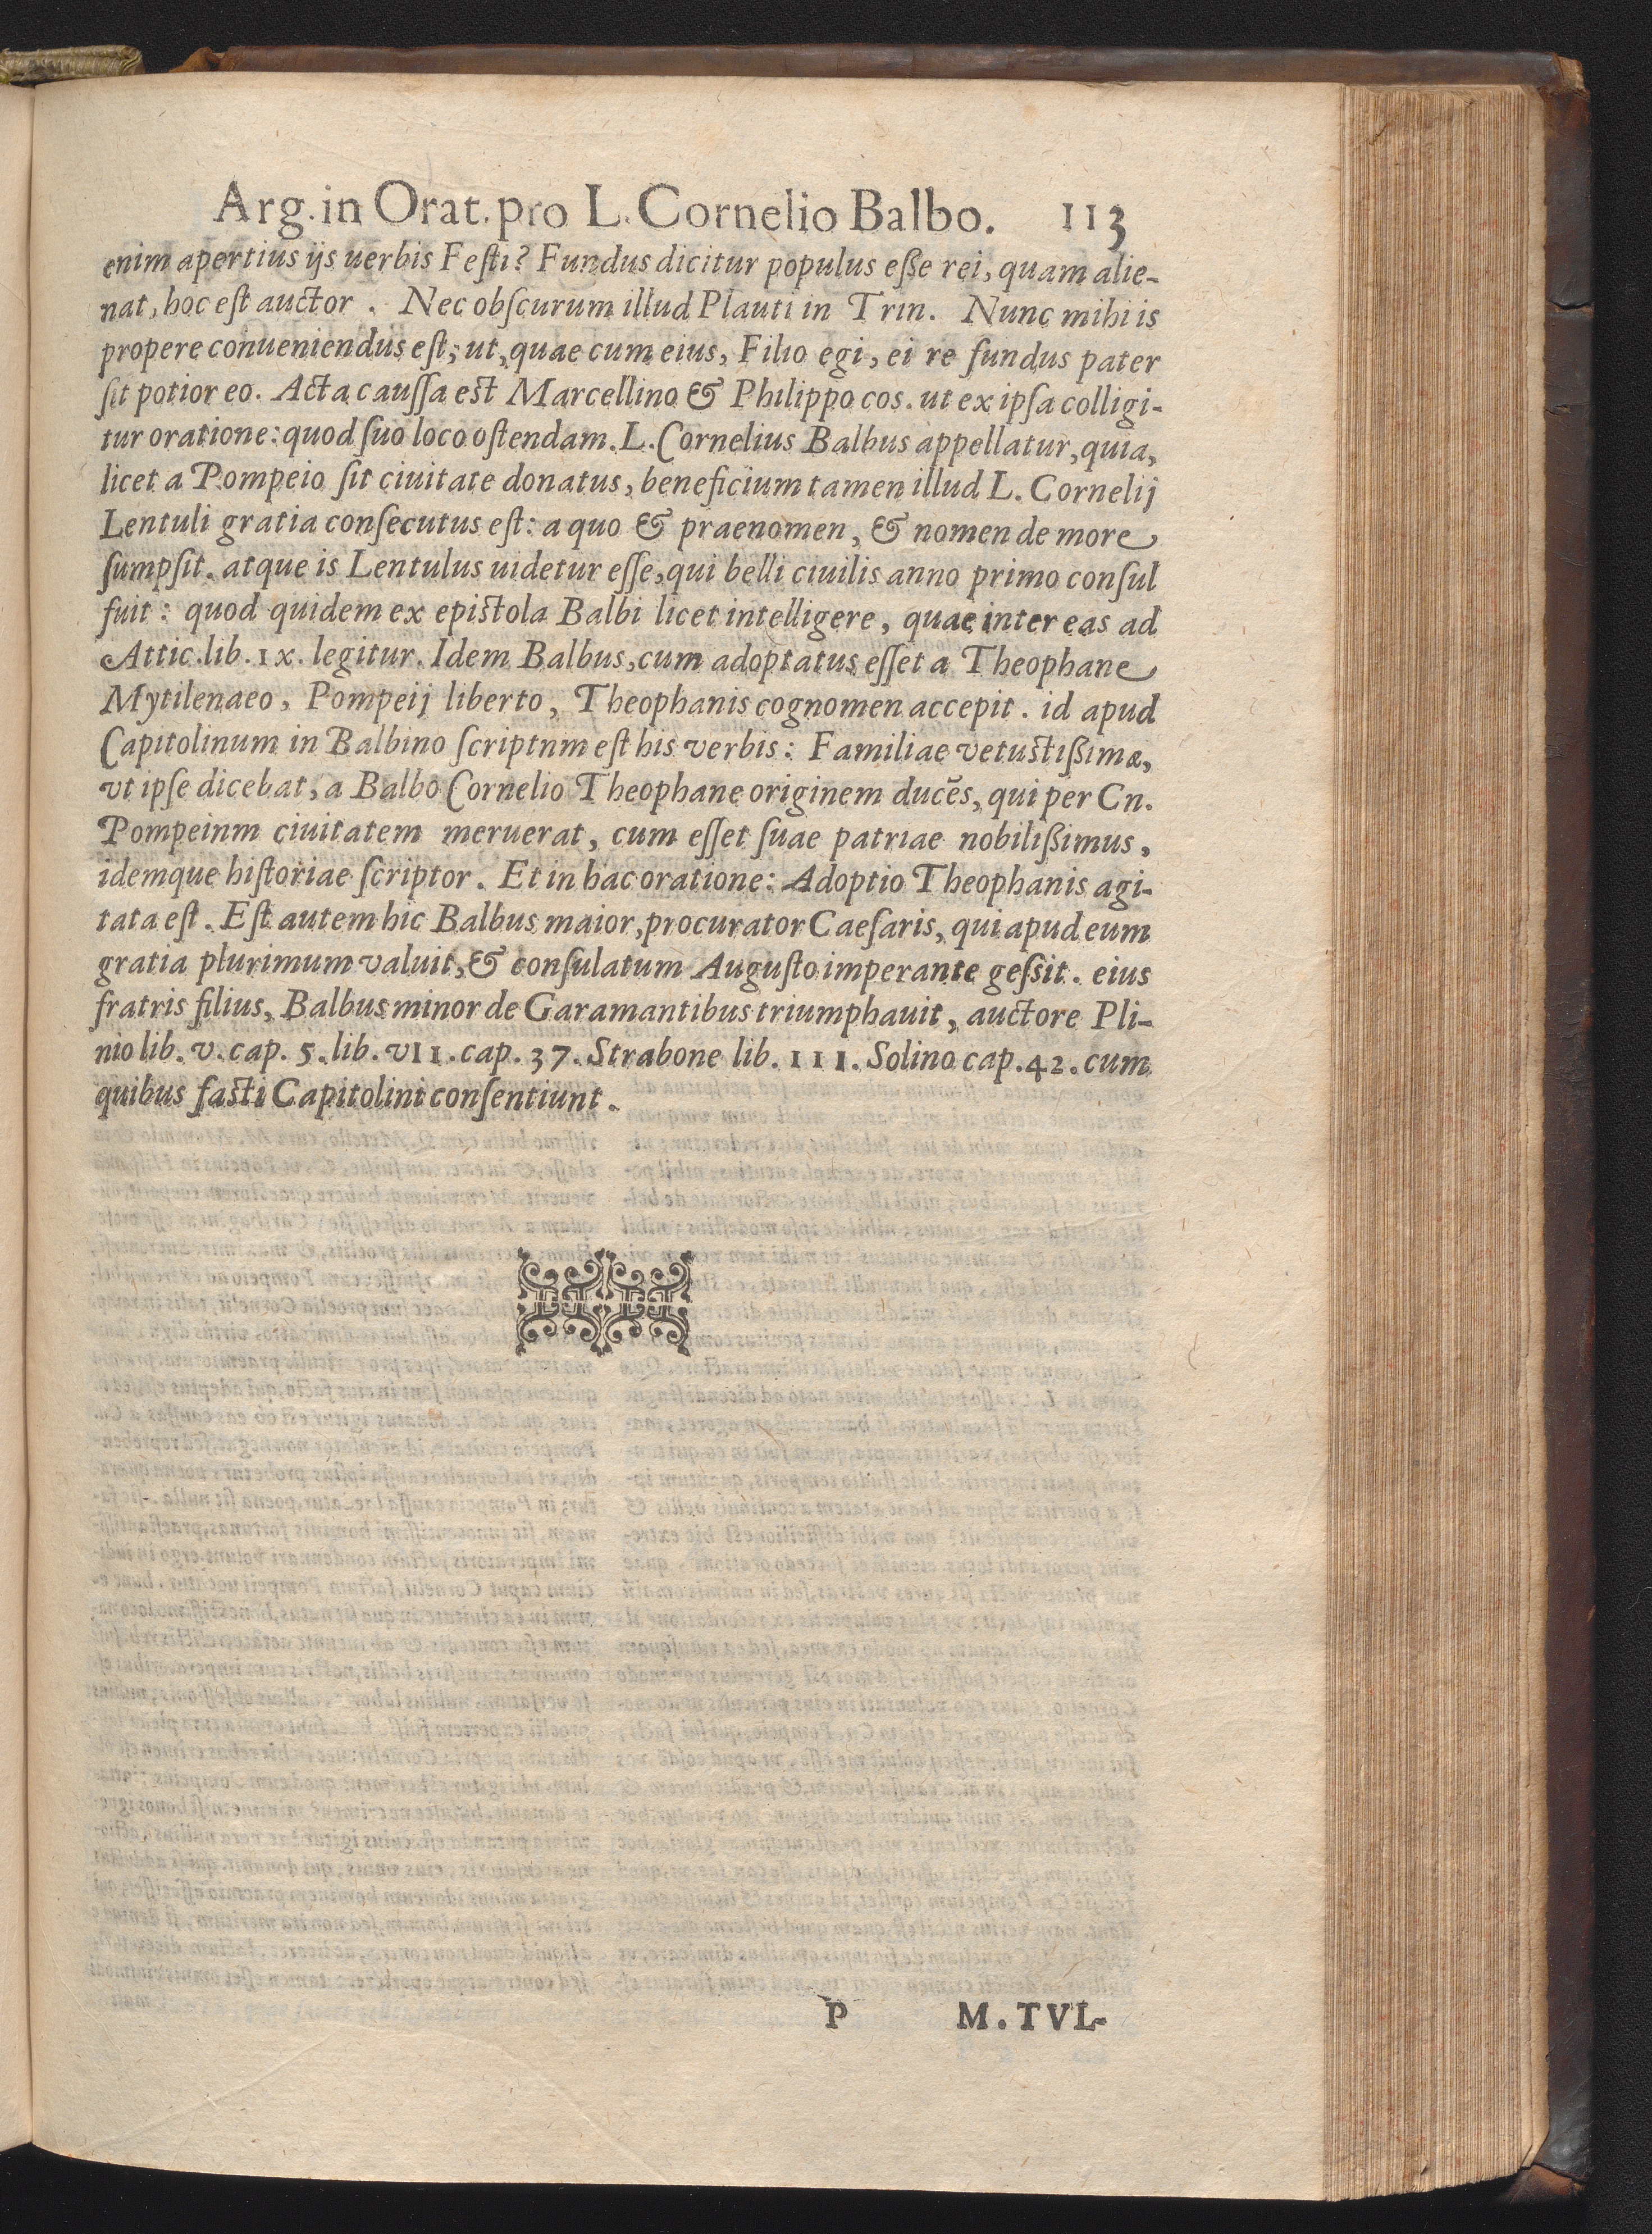 Arg. in Orat. pro L. Cornelio Balbo. 113
enim apertius ijs uerbis Festi? Fundus dicitur populus eße rei, quam alie-
nat, hoc est auctor. Nec obscurum illud Plauti in Trin. Nunc mihi is
propere conueniendus est; ut, quae cum eius, Filio egi, ei re fundus pater
sit potior eo. Acta caussa est Marcellino & Philippo cos. ut ex ipsa colligi-
tur oratione: quod suo loco ostendam. L. Cornelius Balbus appellatur, quia,
licet a Pompeio sit ciuitate donatus, beneficium tamen illud L. Cornelij
Lentuli gratia consecutus est: a quo & praenomen, & nomen de more
sumpsit. atque is Lentulus uidetur esse, qui belli ciuilis anno primo consul
fuit: quod quidem ex epistola Balbi licet intelligere, quae inter eas ad
Attic. lib. IX. legitur. Idem Balbus, cum adoptatus esset a Theophane
Mytilenaeo, Pompeij liberto, Theophanis cognomen accepit. id apud
Capitolinum in Balbino scriptnm est his verbis: Familiae vetustißimæ,
vt ipse dicebat, a Balbo Cornelio Theophane originem ducẽs, qui per Cn.
Pompeinm ciuitatem meruerat, cum esset suae patriae nobilißimus,
idemque historiae scriptor. Et in hac oratione: Adoptio Theophanis agi-
tata est. Est autem hic Balbus maior, procurator Caesaris, qui apud eum
gratia plurimum valuit, & consulatum Augusto imperante gessit. eius
fratris filius, Balbus minor de Garamantibus triumphauit, auctore Pli-
nio lib. v. cap. 5. lib. VII. cap. 37. Strabone lib. III. Solino cap. 42. cum
quibus fasti Capitolini consentiunt.
P M. TVL-